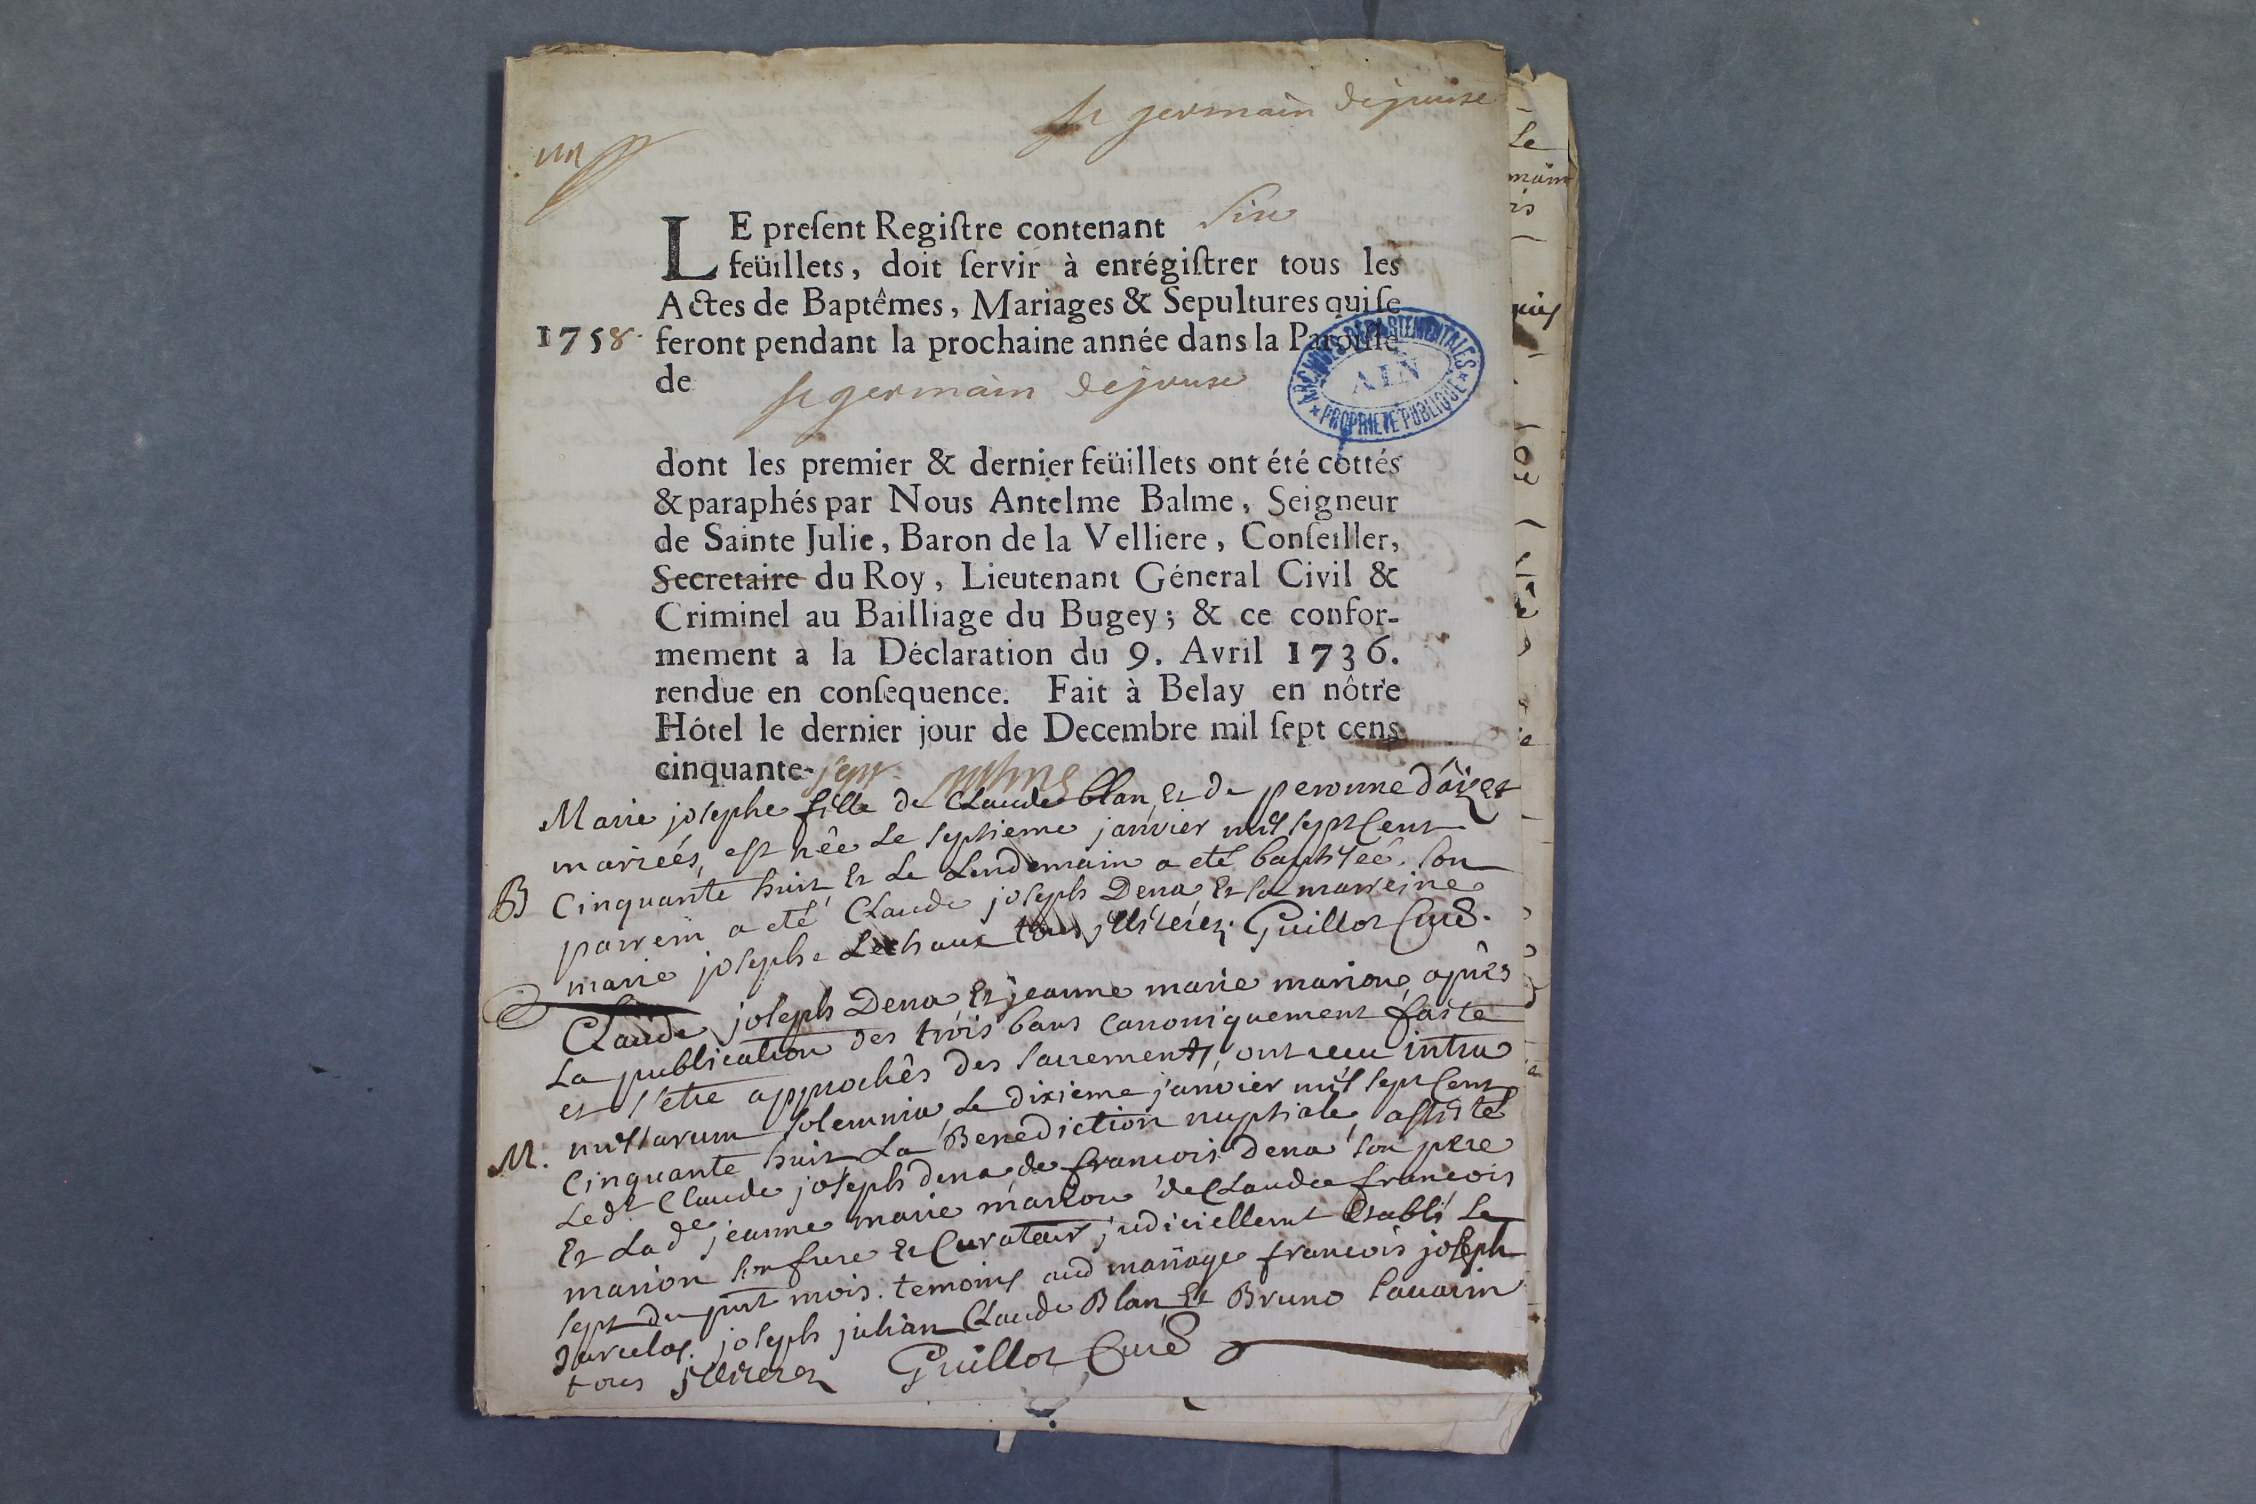 st germain dejoux
un
LE preſent Regiſtre contenant six
feüillets, doit ſervir à enrégiſtrer tous les
Actes de Baptêmes, Mariages & Sepultures qui ſe
1758. feront pendant la prochaine année dans la Paroiſſe
de st germain dejoux
ARCHIVES DEPARTEMENTALES
AIN
PROPRIETE PUBLIQUE
dont les premier & dernier feüillets ont été cottés
& paraphés par Nous Antelme Balme, Seigneur
de Sainte Julie, Baron de la Velliere, Conſeiller,
Secretaire du Roy, Lieutenant Géneral Civil &
Criminel au Bailliage du Bugey; & ce confor-
mement à la Déclaration du 9. Avril 1736.
rendue en conſequence. Fait à Belay en nôtre
Hôtel le dernier jour de Decembre mil ſept cens
cinquante-sept
Marie josephe fille de Claude blan, et de peronne
mariées, est née le septieme janvier mil sept cent
B Cinquante huit et le lendemain a eté baptiseé. son
parrein a eté Claude joseph Dena et la marreine
marie josephe tous illiterez. Guillot Curé.
Claude joseph Dena, et jeanne marie marion, après
La publication des trois bans canoniquement faite
et s'etre approchés des sacrements, ont recu intra
M. missarum solemnia, le dixieme janvier mil sept cent
Cinquante huit La Benediction nuptiale, assisté
Ledt Claude joseph dena de francois dena son pere
Et Lade jeanne marie marion de Claude francois
marion son frere et Curateur judiciellemt etabli le
sept du pnt mois. temoins aud mariage francois joseph
joseph julian Claude Blan et Bruno Savarin
tous illiterez Guillot Curé